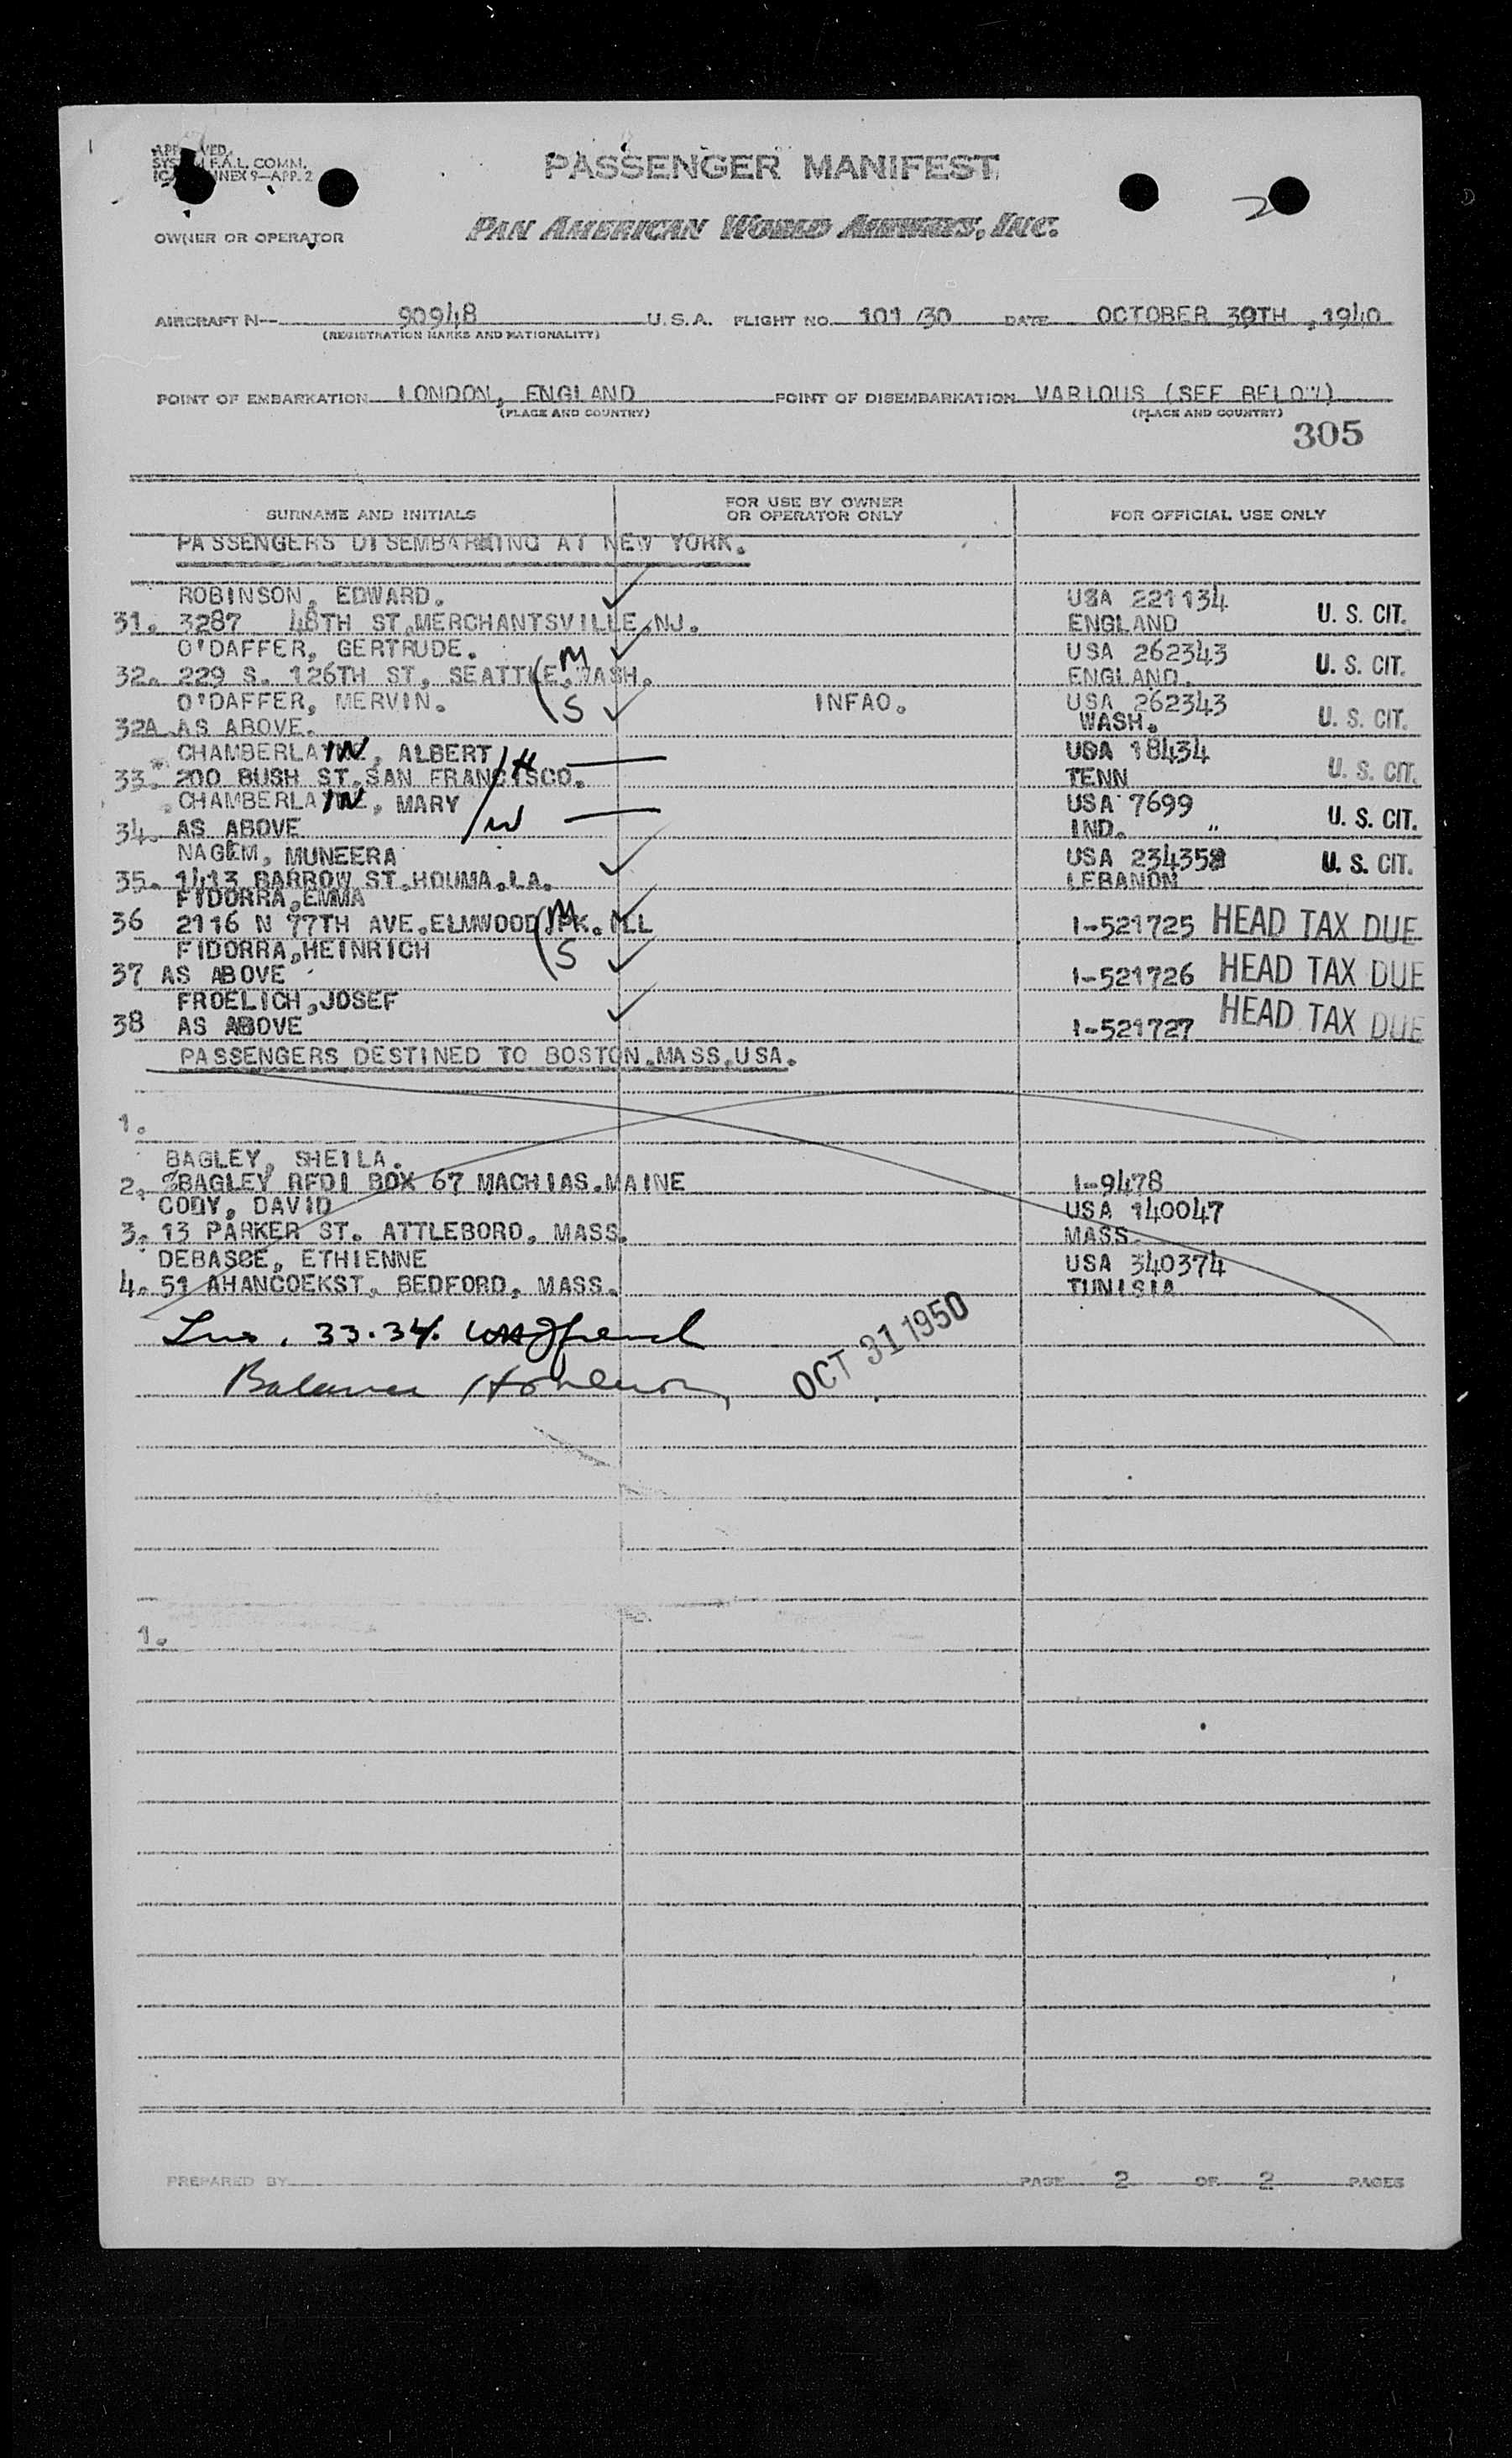 2
PASSENGER MANIFEST
PAN AMERICAN WORLD AIRWAYS, INC.
OWNER OR OPERATOR
AIRCRAFT N— 90948 U.S.A. FLIGHT NO. 101/30 DATE OCTOBER 30TH, 1940
(REGISTRATION MARKS AND NATIONALITY)
POINT OF EMBARKATION LONDON, ENGLAND POINT OF DISEMBARKATION VARIOUS (SEE BELOW)
(PLACE AND COUNTRY) (PLACE AND COUNTRY)
305
SURNAME AND INITIALS FOR USE BY OWNER OR OPERATOR ONLY FOR OFFICIAL USE ONLY
PASSENGERS DISEMBARKING AT NEW YORK.
ROBINSON, EDWARD. USA 221134
31. 3287 48TH ST.MERCHANTSVILLE.NJ. ENGLAND U. S. CIT.
O'DAFFER, GERTRUDE. M USA 262343
32. 229 S. 126TH ST, SEATTLE.WASH. ENGLAND. U. S. CIT.
O'DAFFER, MERVIN. S INFAO. USA 262343
32A.AS ABOVE. WASH. U. S. CIT.
CHAMBERLAIN, ALBERT H USA 18434
33. 200 BUSH ST.SAN FRANCISCO. TENN U. S. CIT.
CHAMBERLAIN, MARY USA 7699
34. AS ABOVE W IND. " U. S. CIT.
NAGEM, MUNEERA USA 234358
35. 1413 BARROW ST.HOUMA.LA. LEBANON U. S. CIT.
FIDORRA,EMMA M
36 2116 N 77TH AVE.ELMWOOD.PK. ILL I-521725 HEAD TAX DUE
FIDORRA,HEINRICH S
37 AS ABOVE I-521726 HEAD TAX DUE
FROELICH,JOSEF
38 AS ABOVE I-521727 HEAD TAX DUE
PASSENGERS DESTINED TO BOSTON.MASS.USA.
1.
BAGLEY, SHEILA.
2. %BAGLEY RFD1 BOX 67 MACHIAS.MAINE I-9478
CODY, DAVID USA 140047
3. 13 PARKER ST. ATTLEBORO. MASS. MASS.
DEBASCE, ETHIENNE USA 340374
4. 51 AHANCOEKST, BEDFORD, MASS. TUNISIA
33.34.
OCT 31 1950
1.
PREPARED BY PAGE 2 OF 2 PAGES